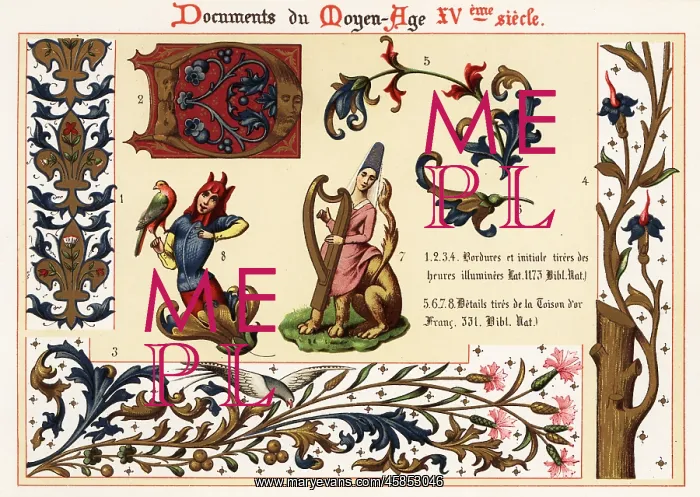 Documents du Moyen-Age XV ème siècle.
5
2
ME
PL
1
4
6
8
7
1.2.3.4. Bordures et initiale tirées des
heures illuminées Lat. 1173 Bibl. Nat.)
5.6.7.8. Détails tirés de la Toison d'or
Franç. 331. Bibl. Nat.)
ME
PL
3
www.maryevans.com/45853046